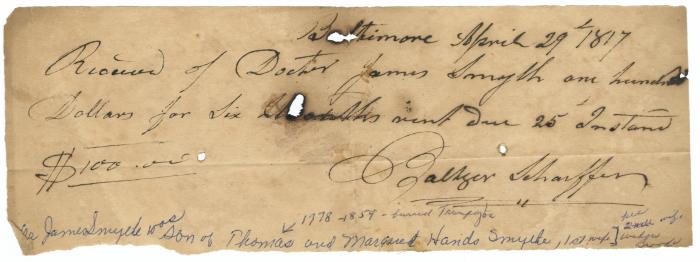 Baltimore April 29th 1817
Received of Doctor James Smyth one hundred
Dollars for Six Months rent due 25th Instand
$100.00
Baltzer Schaeffer
1778-1859 - buried
James Smythe was Son of Thomas and Margaret Hands Smythe, 1st wife] see
2nd wife